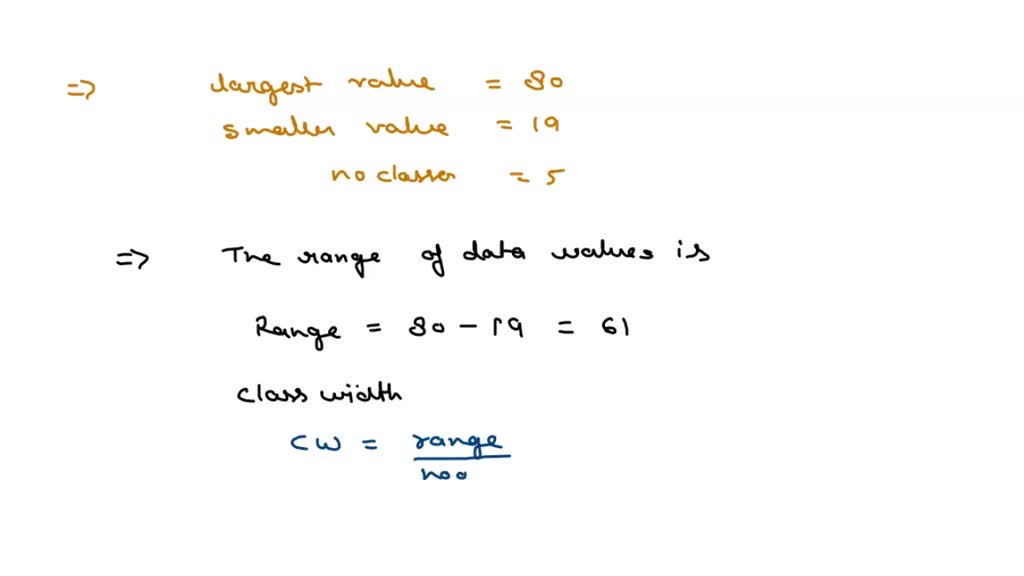 => largest value = 80
smaller value = 19
no classes = 5
=> The range of data values is
Range = 80 - 19 = 61
class width
CW = range
noo